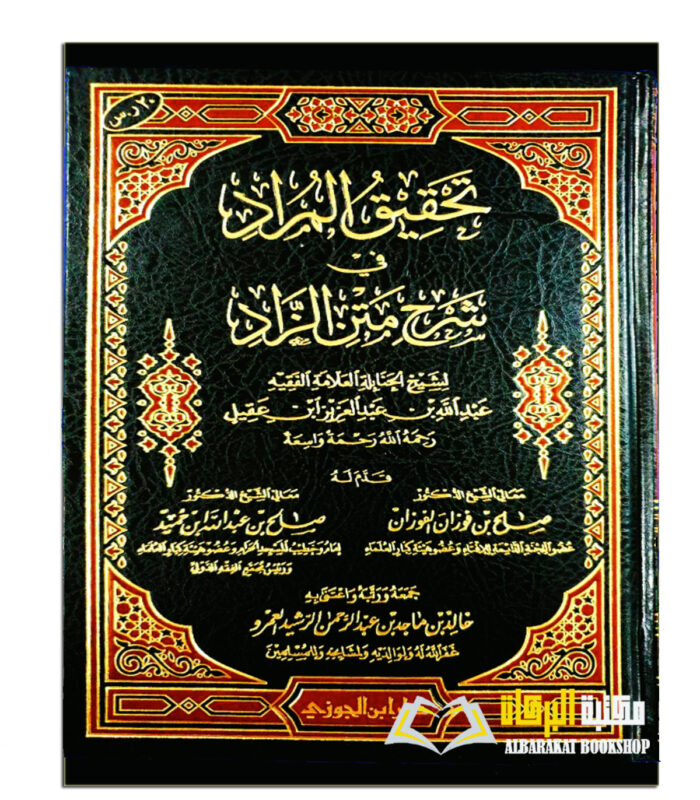 ٢٠ ر.س
تَحْقِيقُ المُرَادِ
فِي
شَرْحِ مَتْنِ الزَّادِ
لشيخ الحنابلة العلامة الفقيه
عبد الله بن عبد العزيز ابن عقيل
رحمه الله رحمة واسعة
قدم له
معالي الشيخ الدكتور
صالح بن فوزان الفوزان
عضو اللجنة الدائمة للإفتاء وعضو هيئة كبار العلماء
معالي الشيخ الدكتور
صالح بن عبد الله ابن حميد
إمام وخطيب المسجد الحرام وعضو هيئة كبار العلماء
ورئيس مجمع الفقه الدولي
جمعه ورتبه واعتنى به
خالد بن ماجد بن عبد الرحمن الرشيد العمرو
غفر الله له ولوالديه ولمشايخه وللمسلمين
ابن الجوزي
مكتبة البركات
ALBARAKAT BOOKSHOP